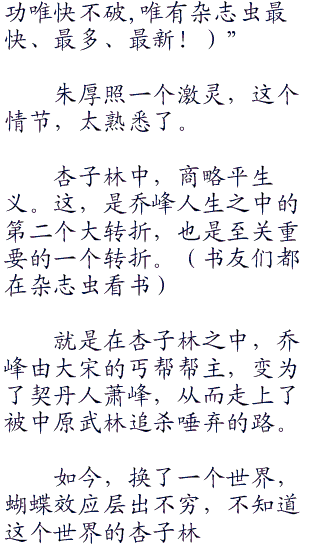 功唯快不破,唯有杂志虫最
快、最多、最新！）”
朱厚照一个激灵，这个
情节，太熟悉了。
杏子林中，商略平生
义。这，是乔峰人生之中的
第二个大转折，也是至关重
要的一个转折。（书友们都
在杂志虫看书）
就是在杏子林之中，乔
峰由大宋的丐帮帮主，变为
了契丹人萧峰，从而走上了
被中原武林追杀唾弃的路。
如今，换了一个世界，
蝴蝶效应层出不穷，不知道
这个世界的杏子林